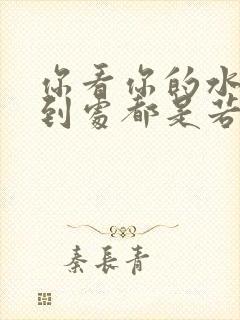 你看你的水
到處都是若
秦長青